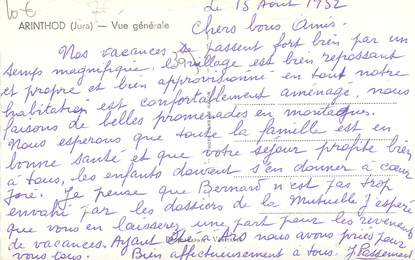 10 €
Le 15 Août 1952
ARINTHOD (Jura) — Vue générale
Chers bons Amis.
Nos vacances se passent fort bien par un
temps magnifique, le village est bien reposant
et propre et bien approvisionné en tout notre
habitation est confortablement aménagé, nous
faisons de belles promenades en montagnes.
Nous esperons que toute la famille est en
bonne santé et que votre séjour profite bien
à tous, les enfants doivent s'en donner à cœur
joie. Je pense que Bernard n'est pas trop
envahi par les dossiers de la Mutuelle j'espère
que vous en laisserez une part pour les revenants
de vacances. Ayant été à Ars nous avons priés pour
vous tous. Bien affectueusement à tous.